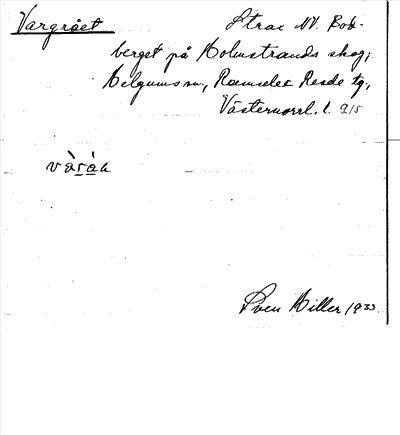 Vargrået
Strax NV. Bod-
berget på Holmstrands skog,
Helgums sn, Ramsele o Resele tg,
Västernorrl. l. 215
vàràɷ
Sven Hiller 1933.